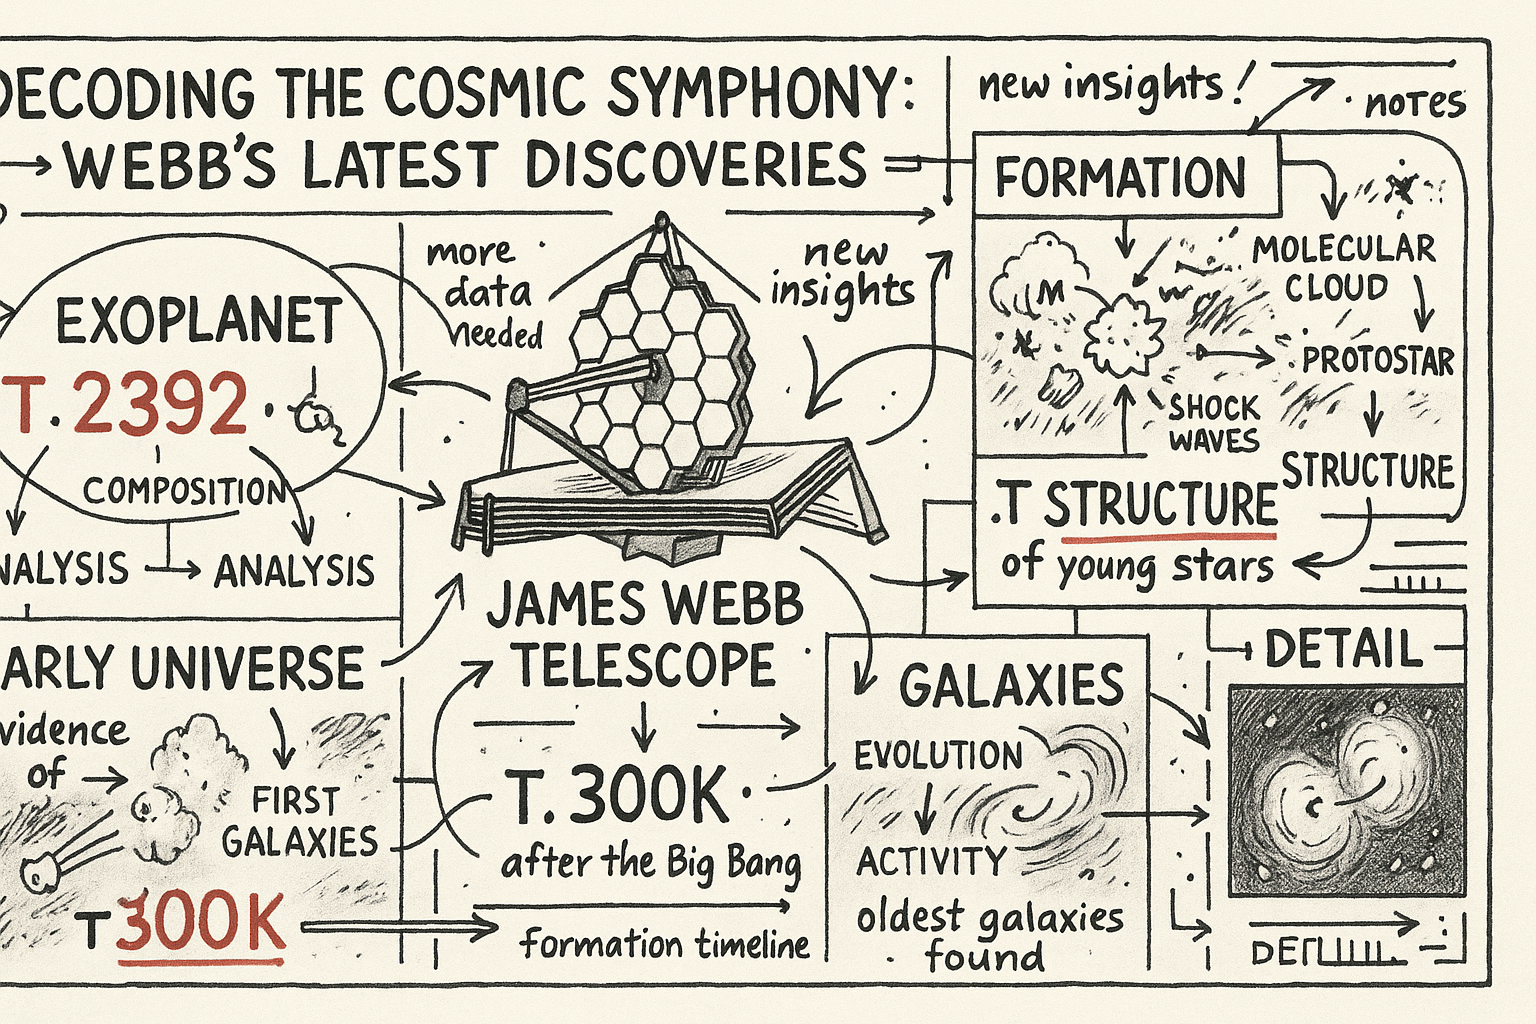 DECODING THE COSMIC SYMPHONY:
WEBB'S LATEST DISCOVERIES
new insights!
notes
EXOPLANET
T. 2392
COMPOSITION
NALYSIS
ANALYSIS
more
data
needed
new
insights
FORMATION
M
MOLECULAR
CLOUD
PROTOSTAR
SHOCK
WAVES
STRUCTURE
.T STRUCTURE
of young stars
ARLY UNIVERSE
vidence
of
FIRST
GALAXIES
T300K
JAMES WEBB
TELESCOPE
T. 300K
after the Big Bang
formation timeline
GALAXIES
EVOLUTION
ACTIVITY
oldest galaxies
found
DETAIL